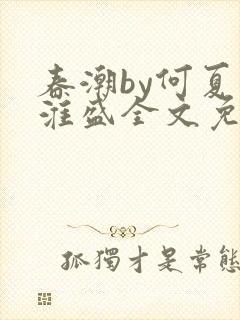 春潮by何夏
淮盛全文免
孤獨才是常態